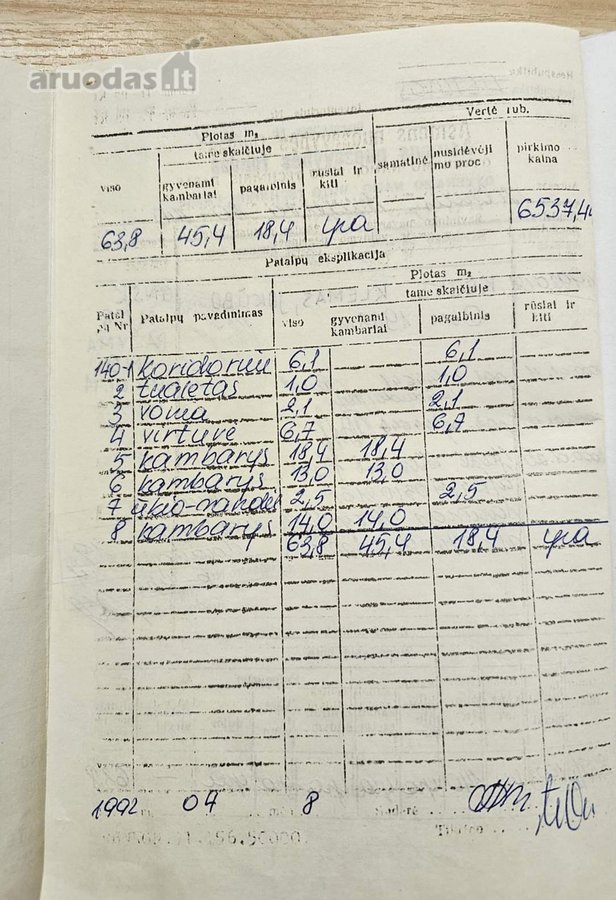 aruodas.lt
Plotas m₂
Vertė rub.
viso
tame skaičiuje
gyvenami kambariai
pagalbinis
rūsiai ir kiti
samatinė
nusidėvėji mo proc
pirkimo kaina
63,8 45,4 18,4 yra 6537,4
Patalpų eksplikacija
Patal pų Nr
Patalpų pavadinimas
Plotas m₂
tame skaičiuje
viso
gyvenami kambariai
pagalbinis
rūsiai ir kiti
140-1 koridorius 6,1 6,1
2 tualetas 1,0 1,0
3 vonia 2,1 2,1
4 virtuvė 6,7 6,7
5 kambarys 18,4 18,4
6 kambarys 13,0 13,0
7 ūkio 2,5 2,5
8 kambarys 14,0 14,0
63,8 45,4 18,4 yra
1992 04 8